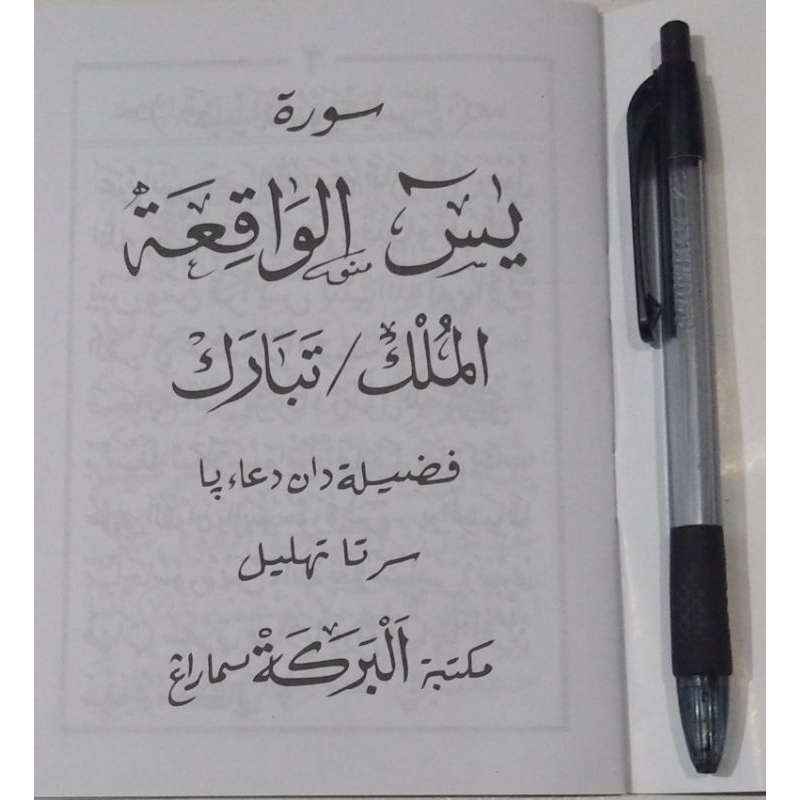 سورة
يٰسٓ الوَاقِعَة
المُلْكْ / تَبَارَكْ
فضيلة دان دعاء يا
سرتا تهليل
مكتبة اَلْبَرَكَةْ سماراڠ